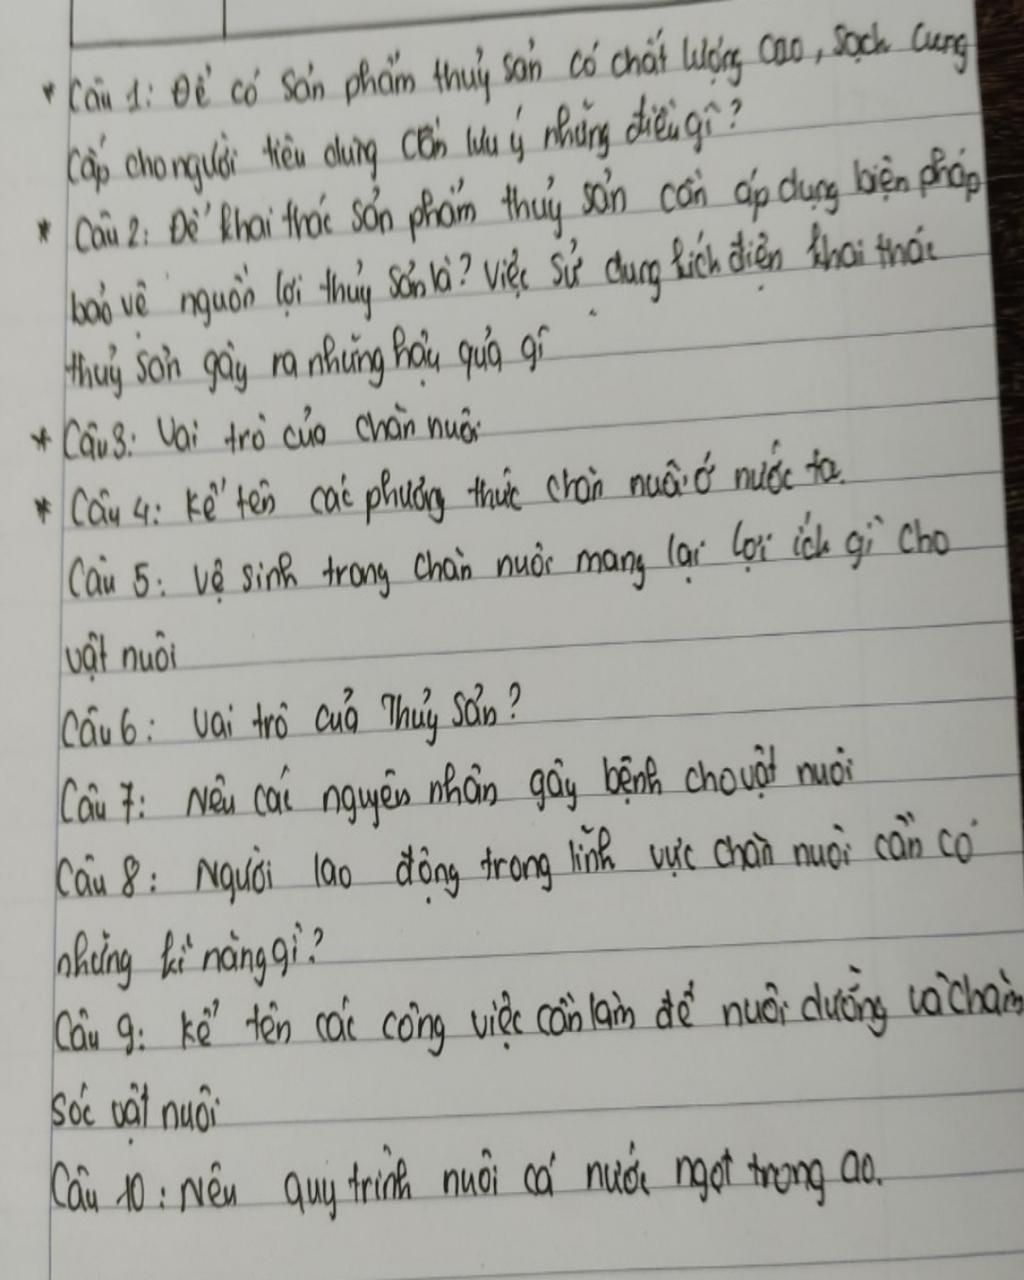 * Câu 1: Để có sản phẩm thuỷ sản có chất lượng cao, sạch cung
cấp cho người tiêu dùng cần lưu ý những điều gì?
* Câu 2: Để khai thác sản phẩm thuỷ sản cần áp dụng biện pháp
bảo vệ nguồn lợi thuỷ sản là? Việc sử dung kích điện khai thác
thuỷ sản gây ra những hậu quả gì
* Câu 3: Vai trò của chăn nuôi
* Câu 4: Kể tên các phương thức chăn nuôi ở nước ta.
Câu 5: Vệ sinh trong chăn nuôi mang lại lợi ích gì cho
vật nuôi
Câu 6: Vai trò của Thuỷ sản?
Câu 7: Nêu các nguyên nhân gây bệnh cho vật nuôi
Câu 8: Người lao động trong lĩnh vực chăn nuôi cần có
những kĩ năng gì?
Câu 9: Kể tên các công việc cần làm để nuôi dưỡng và chăm
sóc vật nuôi
Câu 10: Nêu quy trình nuôi cá nước ngọt trong ao.